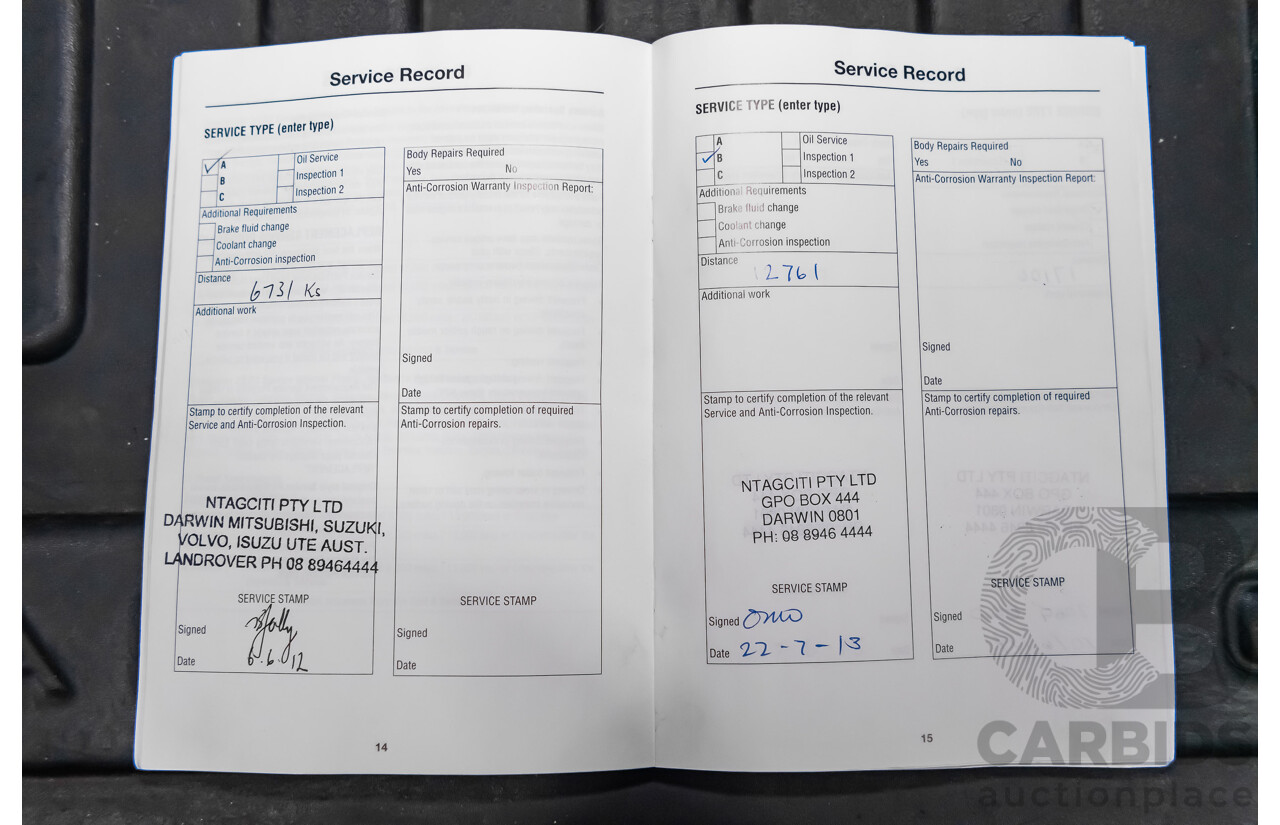 Service Record
SERVICE TYPE (enter type)
A
B
C
Oil Service
Inspection 1
Inspection 2
Additional Requirements
Brake fluid change
Coolant change
Anti-Corrosion inspection
Distance
6731 Ks
Additional work
Stamp to certify completion of the relevant
Service and Anti-Corrosion Inspection.
NTAGCITI PTY LTD
DARWIN MITSUBISHI, SUZUKI,
VOLVO, ISUZU UTE AUST.
LANDROVER PH 08 89464444
SERVICE STAMP
Signed
Date 6.6.12
Body Repairs Required
Yes No
Anti-Corrosion Warranty Inspection Report:
Signed
Date
Stamp to certify completion of required
Anti-Corrosion repairs.
SERVICE STAMP
Signed
Date
14
Service Record
SERVICE TYPE (enter type)
A
B
C
Oil Service
Inspection 1
Inspection 2
Additional Requirements
Brake fluid change
Coolant change
Anti-Corrosion inspection
Distance
12761
Additional work
Stamp to certify completion of the relevant
Service and Anti-Corrosion Inspection.
NTAGCITI PTY LTD
GPO BOX 444
DARWIN 0801
PH: 08 8946 4444
SERVICE STAMP
Signed
Date 22-7-13
Body Repairs Required
Yes No
Anti-Corrosion Warranty Inspection Report:
Signed
Date
Stamp to certify completion of required
Anti-Corrosion repairs.
SERVICE STAMP
Signed
Date
15
CARBIDS
auctionplace